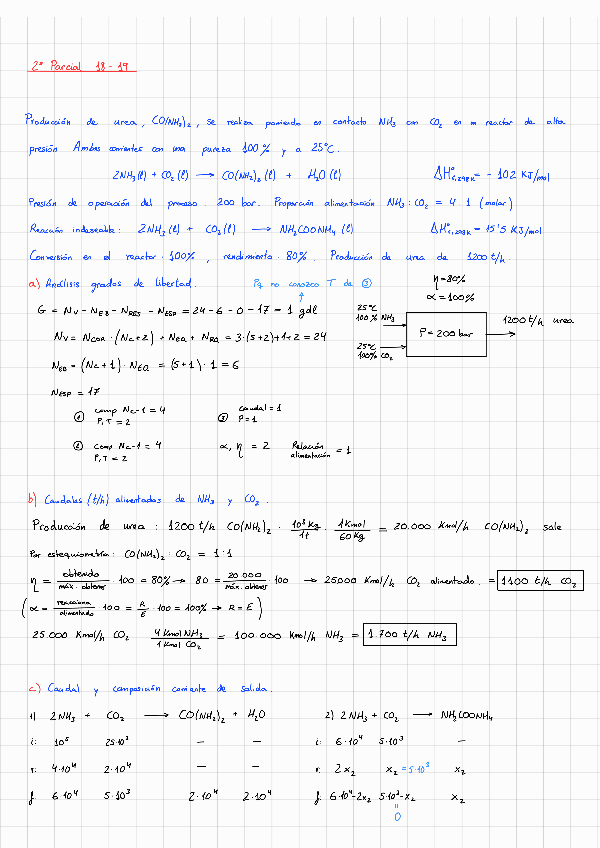 2º Parcial 18-19
Producción de urea, CO(NH₂)₂, se realiza poniendo en contacto NH₃ con CO₂ en un reactor de alta
presión. Ambas corrientes con una pureza 100% y a 25ºC.
2NH₃(l) + CO₂(l) → CO(NH₂)₂(l) + H₂O(l) ΔHºr,298K = -102 KJ/mol
Presión de operación del proceso: 200 bar. Proporción alimentación NH₃:CO₂ = 4:1 (molar)
Reacción indeseable: 2NH₃(l) + CO₂(l) → NH₂COONH₄(l) ΔHºr,298K = 15'5 KJ/mol
Conversión en el reactor: 100%, rendimiento: 80%. Producción de urea de 1200 t/h.
a) Análisis grados de libertad. Pq no conozco T de ③
η = 80%
α = 100%
G = Nv - NEB - NRES - NESP = 24-6-0-17 = 1 gdl
25ºC
100% NH₃
P = 200 bar
1200 t/h urea
25ºC
100% CO₂
Nv = NCOR · (NC+2) + NEQ + NRQ = 3·(5+2)+1+2 = 24
NEB = (NC+1) · NEQ = (5+1)·1 = 6
NESP = 17
① comp NC-1 = 4
P,T = 2
③ caudal = 1
P = 1
② comp NC-1 = 4
P,T = 2
α, η = 2 Relación alimentación = 1
b) Caudales (t/h) alimentados de NH₃ y CO₂.
Producción de urea: 1200 t/h CO(NH₂)₂ · 10³ Kg/1t · 1Kmol/60Kg = 20.000 Kmol/h CO(NH₂)₂ sale
Por estequiometría: CO(NH₂)₂ : CO₂ = 1:1
η = obtenido/máx. obtener · 100 = 80% → 80 = 20.000/máx. obtener · 100 → 25.000 Kmol/h CO₂ alimentado. = 1100 t/h CO₂
(α = reacciona/alimentado · 100 = R/E · 100 = 100% → R = E)
25.000 Kmol/h CO₂ 4 Kmol NH₃/1 Kmol CO₂ = 100.000 Kmol/h NH₃ = 1.700 t/h NH₃
c) Caudal y composición corriente de salida.
1) 2NH₃ + CO₂ → CO(NH₂)₂ + H₂O 2) 2NH₃ + CO₂ → NH₂COONH₄
i: 10⁵ 25·10³ — — i: 6·10⁴ 5·10³ —
r: 4·10⁴ 2·10⁴ — — r: 2x₂ x₂ = 5·10³ x₂
f: 6·10⁴ 5·10³ 2·10⁴ 2·10⁴ f: 6·10⁴-2x₂ 5·10³-x₂ x₂
=
0